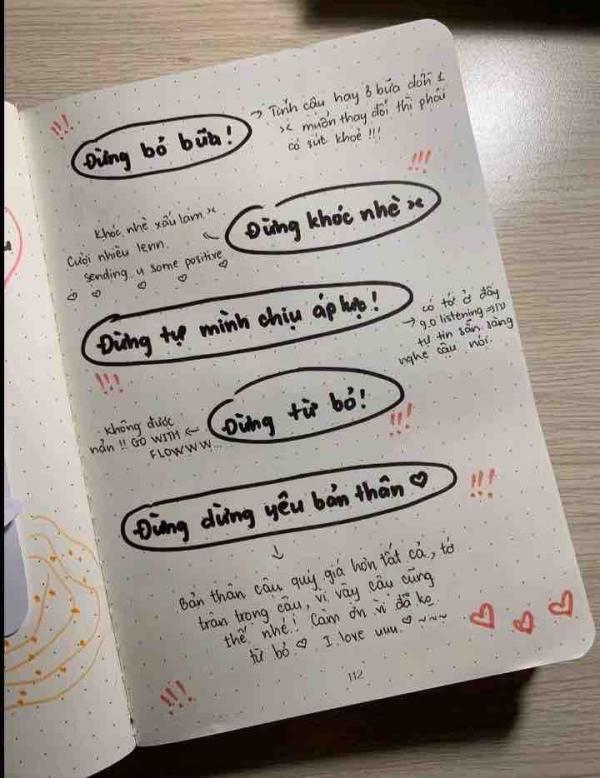 Đừng bỏ bữa!
→ Tính cậu hay 3 bữa dồn 1
muốn thay đổi thì phải
có sức khoẻ !!!
!!!
!!!
Đừng khóc nhè
Khóc nhè xấu lắm
Cười nhiều lenn.
sending u some positive
Đừng tự mình chịu áp lực!
có tớ ở đây
→ 9.0 listening ⇒
tự tin sẵn sàng
nghe cậu nói.
!!!
Đừng từ bỏ!
Không được
nản !! GO WITH ←
FLOWWW...
!!!
Đừng dừng yêu bản thân ♡
!!!
↓
Bản thân cậu quý giá hơn tất cả, tớ
trân trọng cậu, vì vậy cậu cũng
thế nhé! Cảm ơn vì đã ko
từ bỏ ♡ I love uuu. ♡ ~~~
!!!
112